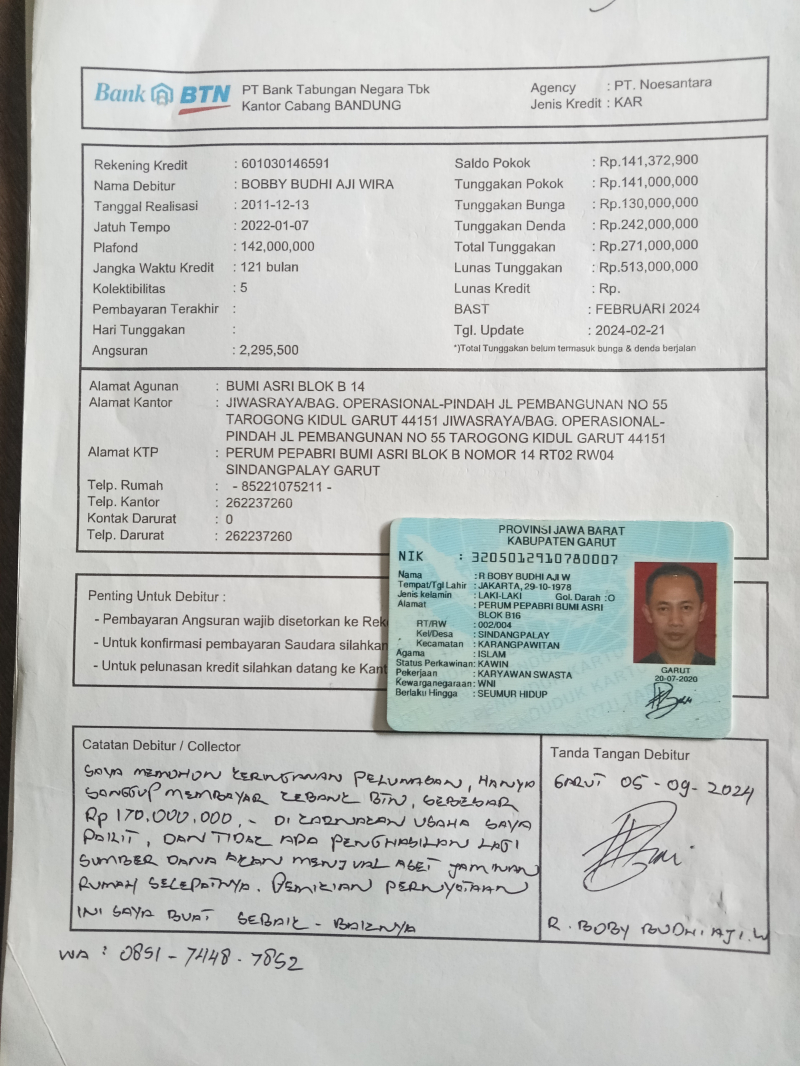 Bank BTN PT Bank Tabungan Negara Tbk
Kantor Cabang BANDUNG
Agency : PT. Noesantara
Jenis Kredit : KAR
Rekening Kredit : 601030146591
Nama Debitur : BOBBY BUDHI AJI WIRA
Tanggal Realisasi : 2011-12-13
Jatuh Tempo : 2022-01-07
Plafond : 142,000,000
Jangka Waktu Kredit : 121 bulan
Kolektibilitas : 5
Pembayaran Terakhir :
Hari Tunggakan :
Angsuran : 2,295,500
Saldo Pokok : Rp.141,372,900
Tunggakan Pokok : Rp.141,000,000
Tunggakan Bunga : Rp.130,000,000
Tunggakan Denda : Rp.242,000,000
Total Tunggakan : Rp.271,000,000
Lunas Tunggakan : Rp.513,000,000
Lunas Kredit : Rp.
BAST : FEBRUARI 2024
Tgl. Update : 2024-02-21
*)Total Tunggakan belum termasuk bunga & denda berjalan
Alamat Agunan : BUMI ASRI BLOK B 14
Alamat Kantor : JIWASRAYA/BAG. OPERASIONAL-PINDAH JL PEMBANGUNAN NO 55
TAROGONG KIDUL GARUT 44151 JIWASRAYA/BAG. OPERASIONAL-
PINDAH JL PEMBANGUNAN NO 55 TAROGONG KIDUL GARUT 44151
Alamat KTP : PERUM PEPABRI BUMI ASRI BLOK B NOMOR 14 RT02 RW04
SINDANGPALAY GARUT
Telp. Rumah : - 85221075211 -
Telp. Kantor : 262237260
Kontak Darurat : 0
Telp. Darurat : 262237260
PROVINSI JAWA BARAT
KABUPATEN GARUT
NIK : 3205012910780007
Nama : R BOBY BUDHI AJI W
Tempat/Tgl Lahir : JAKARTA, 29-10-1978
Jenis kelamin : LAKI-LAKI Gol. Darah : O
Alamat : PERUM PEPABRI BUMI ASRI
BLOK B16
RT/RW : 002/004
Kel/Desa : SINDANGPALAY
Kecamatan : KARANGPAWITAN
Agama : ISLAM
Status Perkawinan: KAWIN
Pekerjaan : KARYAWAN SWASTA
Kewarganegaraan: WNI
Berlaku Hingga : SEUMUR HIDUP
GARUT
20-07-2020
Penting Untuk Debitur :
- Pembayaran Angsuran wajib disetorkan ke Rek
- Untuk konfirmasi pembayaran Saudara silahkan
- Untuk pelunasan kredit silahkan datang ke Kant
Catatan Debitur / Collector
SAYA MEMOHON KERINGANAN PELUNASAN, HANYA
SANGGUP MEMBAYAR KEBANK BTN, SEBESAR
Rp 170.000.000,- DI KARNAKAN USAHA SAYA
PAILIT, DAN TIDAK ADA PENGHASILAN LAGI
SUMBER DANA AKAN MENJUAL ASET JAMINAN
RUMAH SECEPATNYA. DEMIKIAN PERNYATAAN
INI SAYA BUAT SEBAIK - BAIKNYA
Tanda Tangan Debitur
GARUT 05-09-2024
R. BOBY BUDHI AJI.W
WA : 0851-7448-7852